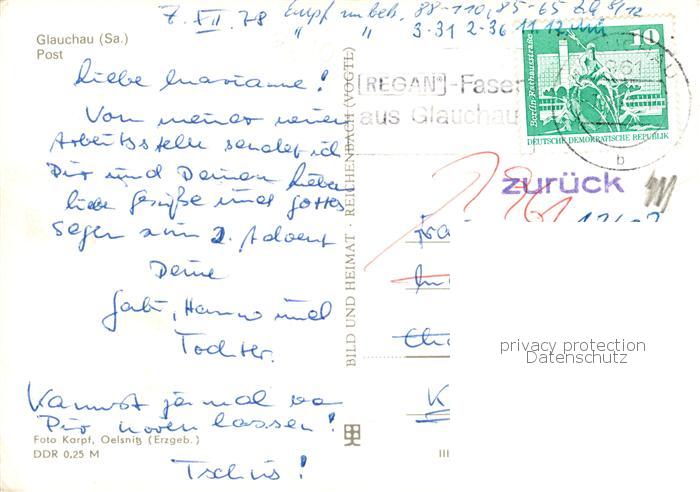 7. XII. 78 Empf. unbek. 88-110, 85-65 ZG 8/12
" " 3-31 2-36 11.12.
Glauchau (Sa.)
Post
Liebe Marianne!
Von meiner neuen
Arbeitsstelle sendet ich
Dir und Deinen Lieben
liebe Grüße und Gottes
Segen zum 2. Advent
Deine
Gabi, Hanno und
Tochter.
Kannst ja mal von
Dir hören lassen!
Tschüs!
Foto Karpf, Oelsnitz (Erzgeb.)
DDR 0,25 M
BILD UND HEIMAT · REICHENBACH (VOGTL)
III
[REGAN®]-Faser
aus Glauchau
10
Berlin-Rathausstraße
DEUTSCHE DEMOKRATISCHE REPUBLIK
b
zurück
K
privacy protection
Datenschutz